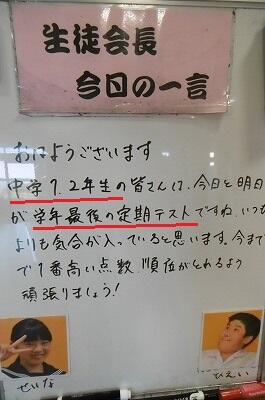 生徒会長
今日の一言
おはようございます
中学1.2年生の皆さんは、今日と明日
が学年最後の定期テストですね。いつも
よりも気合が入っていると思います。今まで
で1番高い点数、順位がとれるよう
頑張りましょう!
せいな
ひえい